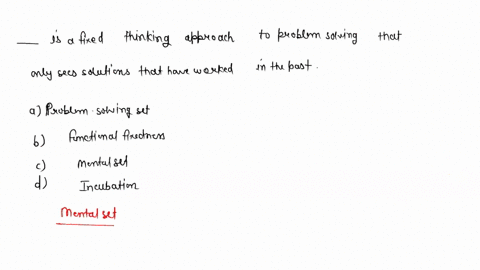 ___ is a fixed thinking approach to problem solving that
only sees solutions that have worked in the past.
a) Problem-solving set
b) functional fixedness
c) Mental set
d) Incubation
Mental set